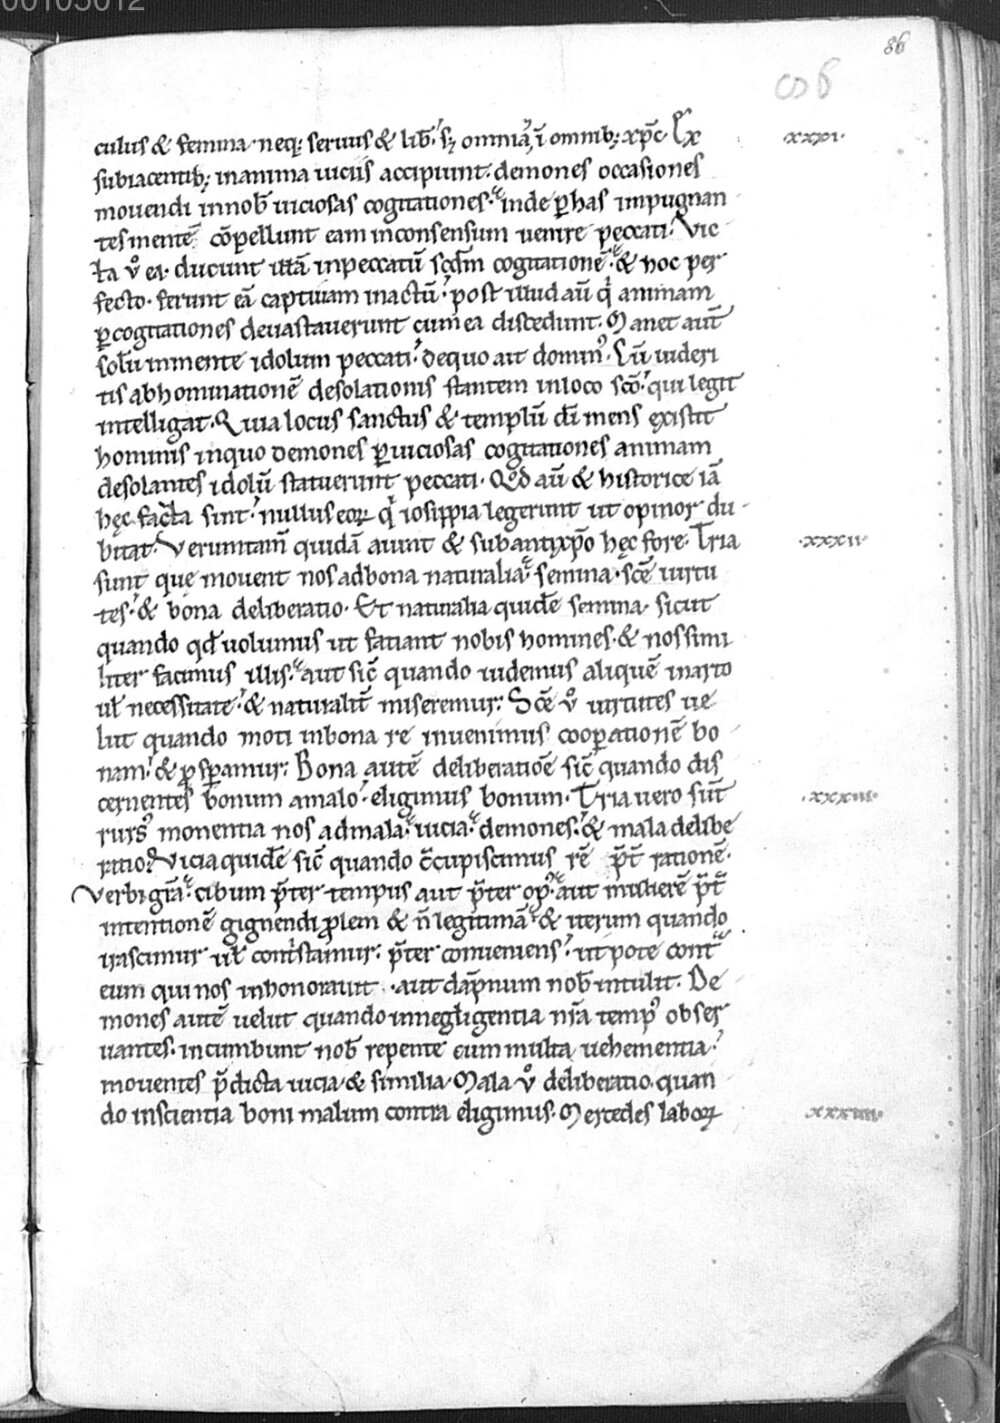 00103012
86
culus & femina· neq; seruus & lib̄· sȝ omnia, ī omnib; xp̄c· Ex
xxxi·
subiacentib; inanima uiciis accipiunt· demones occasiones
mouendi innob̄ uiciosas cogitationes· inde ꝑ has impugnan
tes mentē cōpellunt eam inconsensum uenire peccati· Vic
ta v̊ ea· ducunt illā inpeccatū scd̄m cogitationē· & hoc per
fecto· ferunt eā captiuam inactū· post illud aū q̇ animam
ꝑ cogitationes deuastauerunt cum ea discedunt· Manet aut̄
solū inmente idolum peccati· dequo ait domin᾽· Cū uideri
tis abhominationē desolationis stantem inloco scō· qui legit
intelligat· Quia locus sanctus & templū dī mens existit
hominis inquo demones ꝑ uiciosas cogitationes animam
desolantes idolū statuerunt peccati· Qd̄ aū & historice iā
hęc facta sint· nullus eoꝝ q̇ iosippia legerunt ut opinor du
bitat· Verumtam̄ quidā aiunt & sub antixp̄o hęc fore· Tria
xxxii·
sunt que mouent nos adbona naturalia· semina· scē uirtu
tes· & bona deliberatio· Et naturalia quidē semina· sicut
quando qd̄ uolumus ut faciant nobis homines· & nos simi
liter facimus illis· aut sic̄ quando uidemus aliquē inarto
ul̄ necessitate· & naturalit̄ miseremur· Scē v̊ uirtutes ue
lut quando moti inbona re inuenimus cooperationē bo
nam· & ꝓsꝑamur· Bona autē deliberatiōe sic̄ quando dis
cernentes bonum amalo· eligimus bonum· Tria uero sūt
xxxiii·
rurs᾽ mouentia nos admala· uicia· demones· & mala delibe
ratio· Vicia quidē sic̄ quando c̄cupiscimus rē p̄t̄ rationē·
Verbi grā· cibum p̄ter tempus aut p̄ter op᾽· aut mulierē p̄t̄
intentionē gignendi ꝓlem & n̄ legitimā· & iterum quando
irascimur ul̄ contristamur· p̄ter conueniens· utpote cont̄
eum qui nos inhonorauit· aut dāpnum nob̄ intulit· De
mones autē uelut quando innegligentia nr̄a temp᾽ obser
uantes· incumbunt nob̄ repente cum multa uehementia·
mouentes p̄dicta uicia & similia· Mala v̊ deliberatio· quan
do inscientia boni malum contra eligimus· Mercedes laboꝝ
xxxiiii·